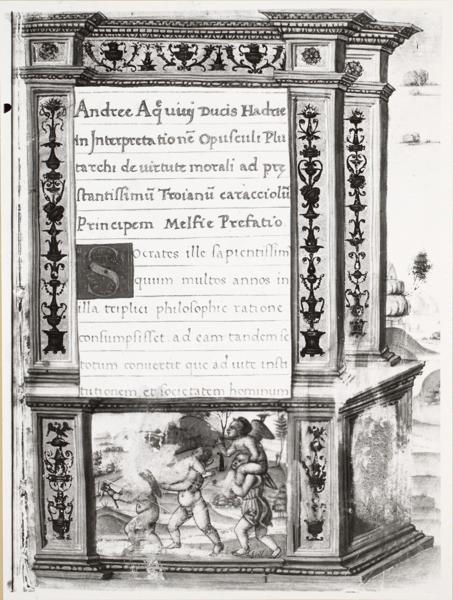 Andree Aqͤuiuij Ducis Hadrie
in Interpretationē Opusculi Plu
tarchi de uirtute morali ad prę
stantissimū Troianū caracciolū
Principem Melfie Prefatio
Socrates ille sapientissim
quum multos annos in
illa triplici philosophie ratione
consumpsisset ad eam tandem se
totum conuertit que ad uite insti
tutionem et societatem hominum